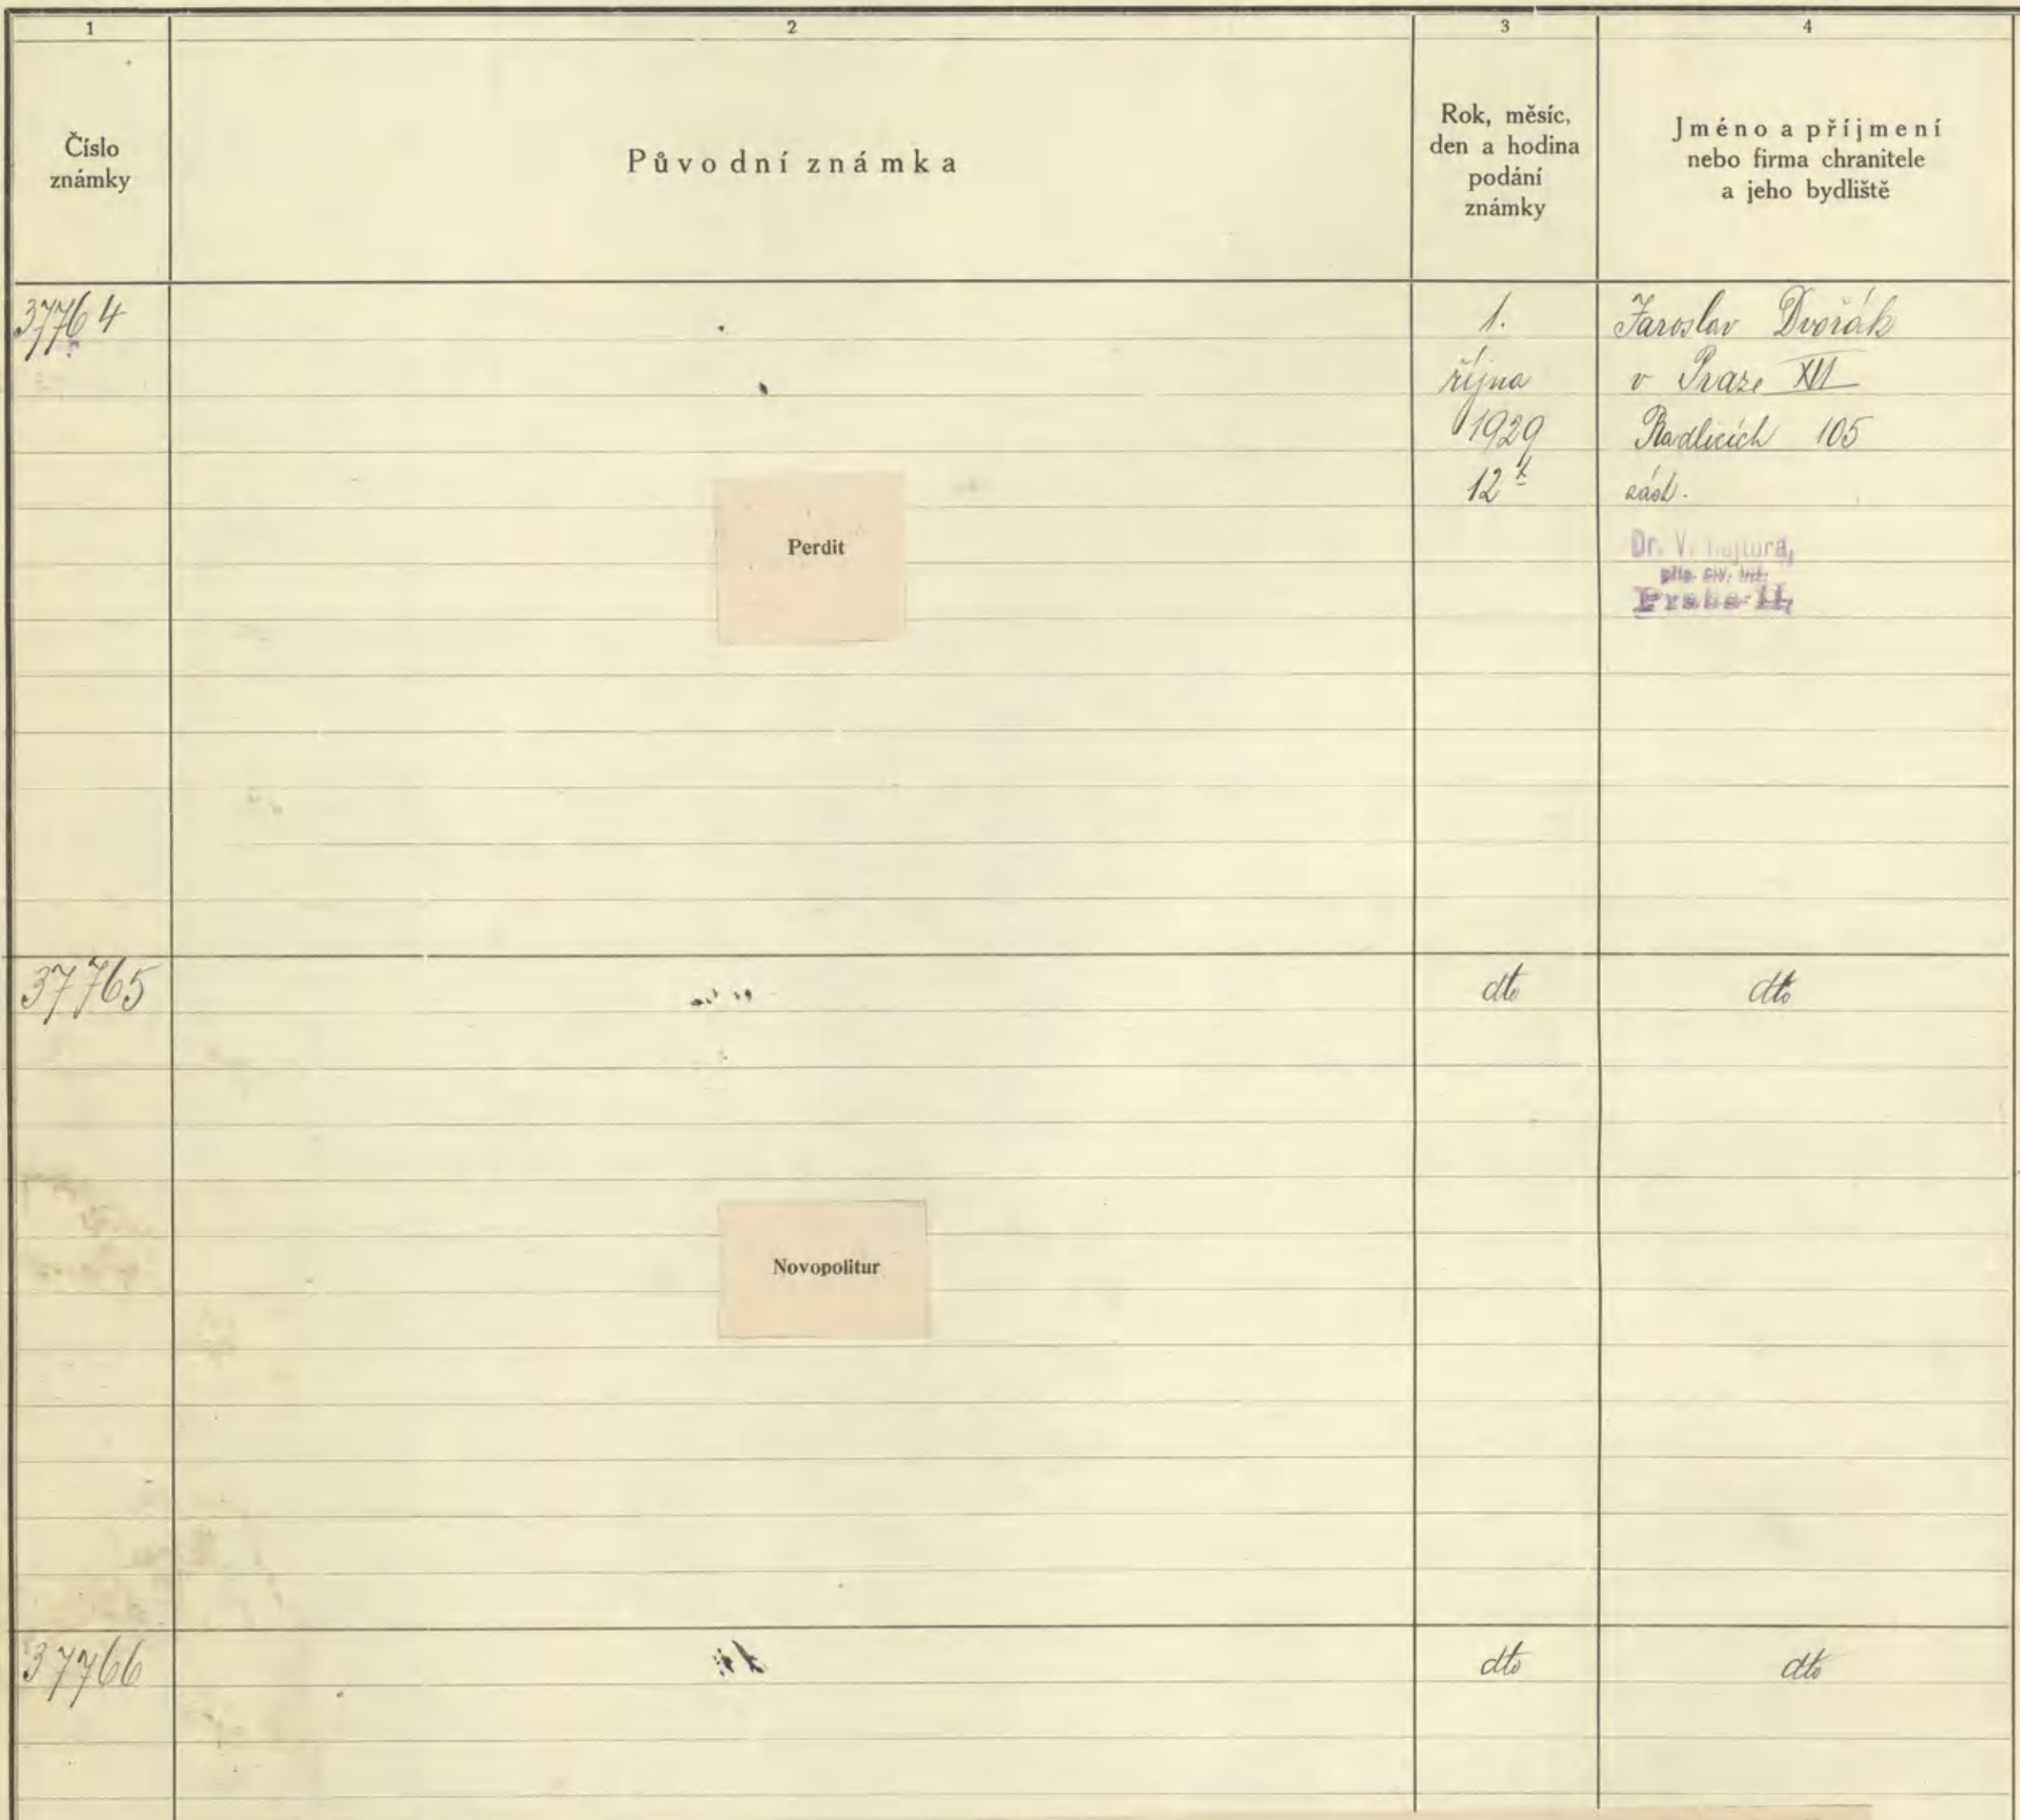 1
2
3
4
Číslo
známky
Původní známka
Rok, měsíc,
den a hodina
podání
známky
Jméno a příjmení
nebo firma chranitele
a jeho bydliště
37764
1.
října
1929
12 h
Jaroslav Dvořák
v Praze
Radlicích 105
zást.
Perdit
Dr. V.
Praha-II,
37765
dto
dto
Novopolitur
37766
dto
dto